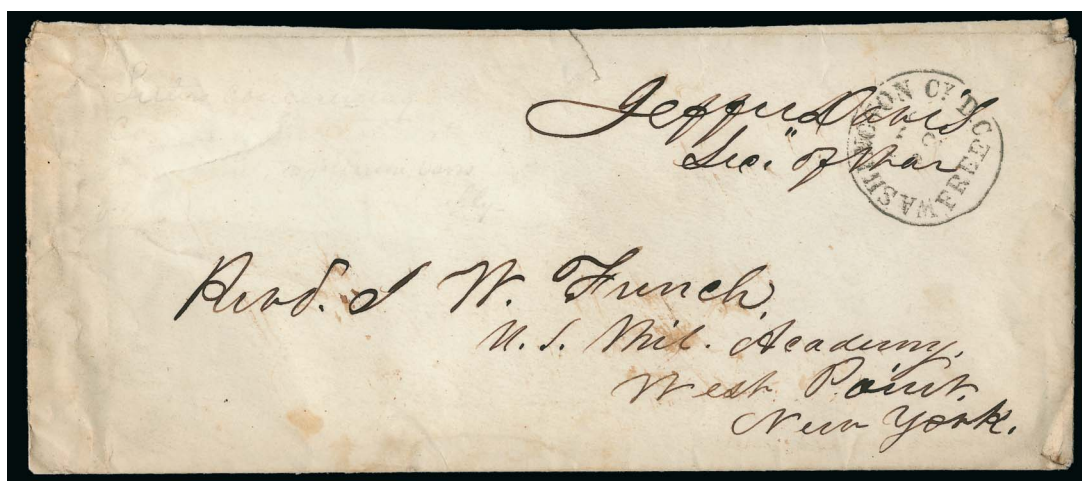 Jeffn Davis
Sec. of War
WASHINGTON CY. D.C.
FREE
Revd. J W. French
U. S. Mil. Academy,
West Point,
New York.